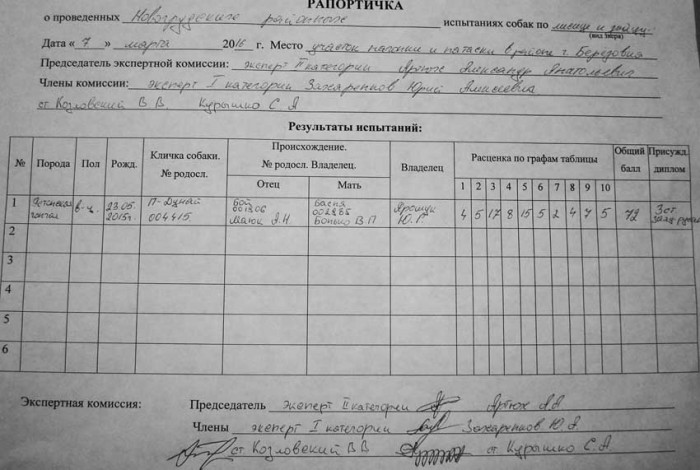 РАПОРТИЧКА
о проведенных Новогрудские районные испытаниях собак по лисице и зайцу
(вид зверя)
Дата « 7 » марта 2016 г. Место участок нагонки и натаски в районе г. Березовка
Председатель экспертной комиссии: эксперт II категории Артюх Александр Анатольевич
Члены комиссии: эксперт I категории Захаренков Юрий
ст Козловский В В. Курышко С. А
Результаты испытаний:
№ Порода Пол Рожд. Кличка собаки. № родосл. Происхождение. № родосл. Владелец. Владелец Расценка по графам таблицы Общий балл Присужд. диплом
Отец Мать 1 2 3 4 5 6 7 8 9 10
1 Эстонская гончая 23.05. 2015г. П-Дунай 004415 Бой 001306 А.Н. Басня 002885 Бонько В П Ю.Г. 4 5 17 8 15 5 2 4 7 5 72 3 ст
2
3
4
5
6
Экспертная комиссия: Председатель эксперт II категории Артюх А.А
Члены эксперт I категории Захаренков Ю.А.
ст Козловский В В ст Курышко С.А.